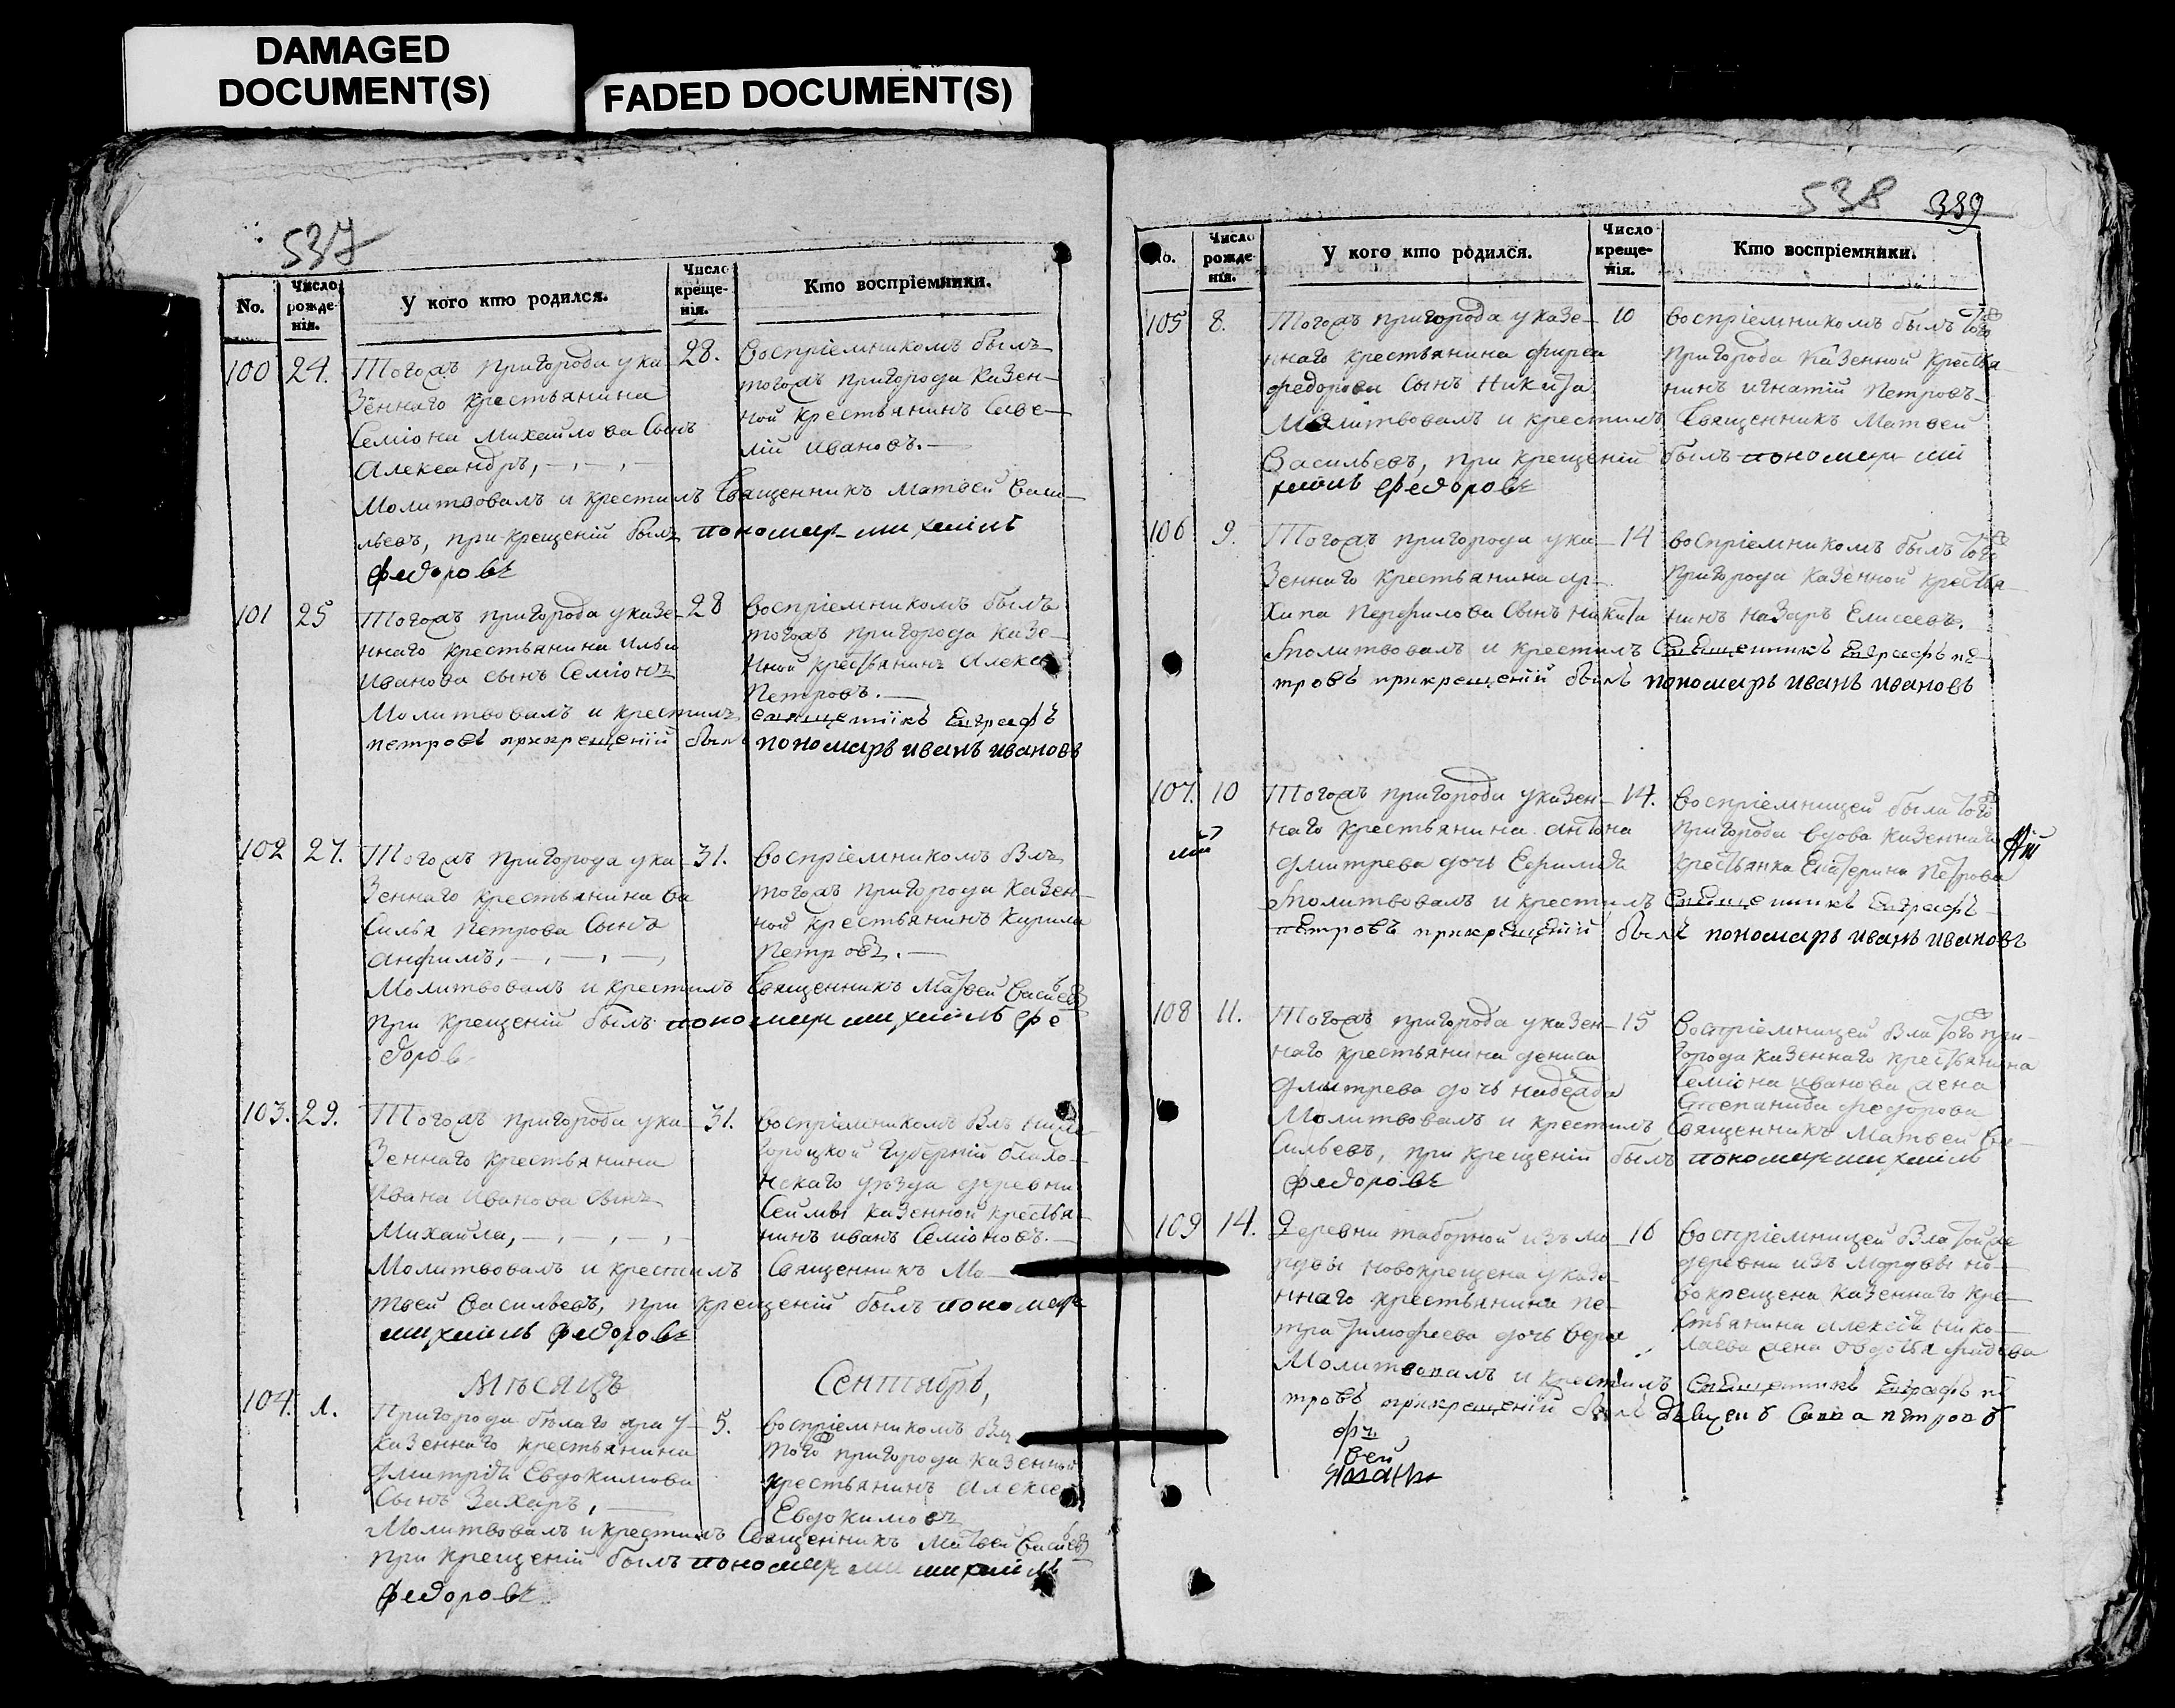 DAMAGED
DOCUMENT(S)
FADED DOCUMENT(S)
537
No.
Число
рожде-
нія.
У кого кто родился.
Число
креще-
нія.
Кто воспріемники.
100
24.
Тогожъ пригорода у ка
зеннаго крестьянина
Семіона Михайлова Сынъ
Александръ,
28.
Воспріемникомъ былъ
тогожъ пригорода казен-
ной крестьянинъ Саве-
лій Ивановъ.
Молитвовалъ и крестилъ Священникъ Матвей Васи-
льевъ, при крещеній былъ пономарь михаилъ
федоровъ
101
25
Тогожъ пригорода у казе-
ннаго крестьянина Ильи
Иванова сынъ Семіонъ
28
Воспріемникомъ былъ
тогожъ пригорода казе-
нной крестьянинъ Алексей
Петровъ.
Молитвовалъ и крестилъ священникъ Евграфъ
петровъ прикрещеніи былъ пономарь иванъ ивановъ
102
27.
Тогожъ пригорода у ка
зеннаго крестьянина Ва
силья Петрова Сынъ
Анфимъ,
31.
Воспріемникомъ Былъ
тогожъ пригорода казен-
ной крестьянинъ Кирила
Петровъ.
Молитвовалъ и крестилъ Священникъ Матвей Васильевъ
при крещеній былъ пономарь михаилъ фе
доровъ
103.
29.
Тогожъ пригорода у ка
зеннаго крестьянина
Ивана Иванова Сынъ
Михайла,
31.
Воспріемникомъ Былъ Ниже
городкой Губерній
уезда деревни
Сеймы казенной крестья-
нинъ иванъ Семіоновъ.
Молитвовалъ и крестилъ Священникъ Ма-
твей Васильевъ, при крещеній былъ пономарь
михаилъ федоровъ
Мѣсяцъ Сентябрь,
104.
Пригорода белаго яра у
казеннаго крестьянина
Дмитрія Евдокимова
Сынъ Захаръ,
5.
Воспріемникомъ
того пригорода казенный
крестьянинъ Алексей
Евдокимовъ
Молитвовалъ и крестилъ Священникъ Матвей Васильевъ
при крещеній былъ пономарь михаилъ
федоровъ
538
339
No.
Число
рожде-
нія.
У кого кто родился.
Число
креще-
нія.
Кто воспріемники.
105
8.
Тогожъ пригорода у казе-
ннаго крестьянина фирса
федорова Сынъ Никита
10
Воспріемникомъ былъ тогожъ
пригорода казенной крестья-
нинъ игнатій Петровъ
Молитвовалъ и крестилъ Священникъ Матвей
Васильевъ, при крещеній былъ пономарь ми
хаилъ федоровъ
106
9.
Тогожъ пригорода у ка-
зеннаго крестьянина Ар-
хипа Перфилова Сынъ Никита
14
Воспріемникомъ былъ тогожъ
пригорода казенной крестья
нинъ Назаръ Елисеевъ.
Молитвовалъ и крестилъ Священникъ Евграфъ пе-
тровъ прикрещеній былъ пономарь иванъ ивановъ
107.
10
Тогожъ пригорода у казен-
наго крестьянина Антона
Дмитрева дочь Ефимія
14.
Воспріемницей была тогожъ
пригорода вдова казенная
крестьянка Екатерина Петрова
Молитвовалъ и крестилъ Священникъ Евграфъ
петровъ прикрещеній былъ пономарь иванъ ивановъ
108
11.
Тогожъ пригорода у казен-
наго крестьянина дениса
Дмитрева дочь надежда
15
Воспріемницей Была тогожъ при-
города казеннаго крестьянина
Семіона иванова жена
Степанида федорова
Молитвовалъ и крестилъ Священникъ Матвей Ва-
сильевъ, при крещеній былъ пономарь михаилъ
федоровъ
109
14.
Деревни таборной изъ мо
рдвы новокрещена у казе-
ннаго крестьянина Пе-
тра Тимофеева дочь Вера
16
Воспріемницей Была той же
деревни изъ Мордвы но-
вокрещена казеннаго кре-
стьянина Алексія Нико-
лаева жена
Молитвовалъ и крестилъ Священникъ Евграфъ пе
тровъ прикрещеній былъ Савва петровъ